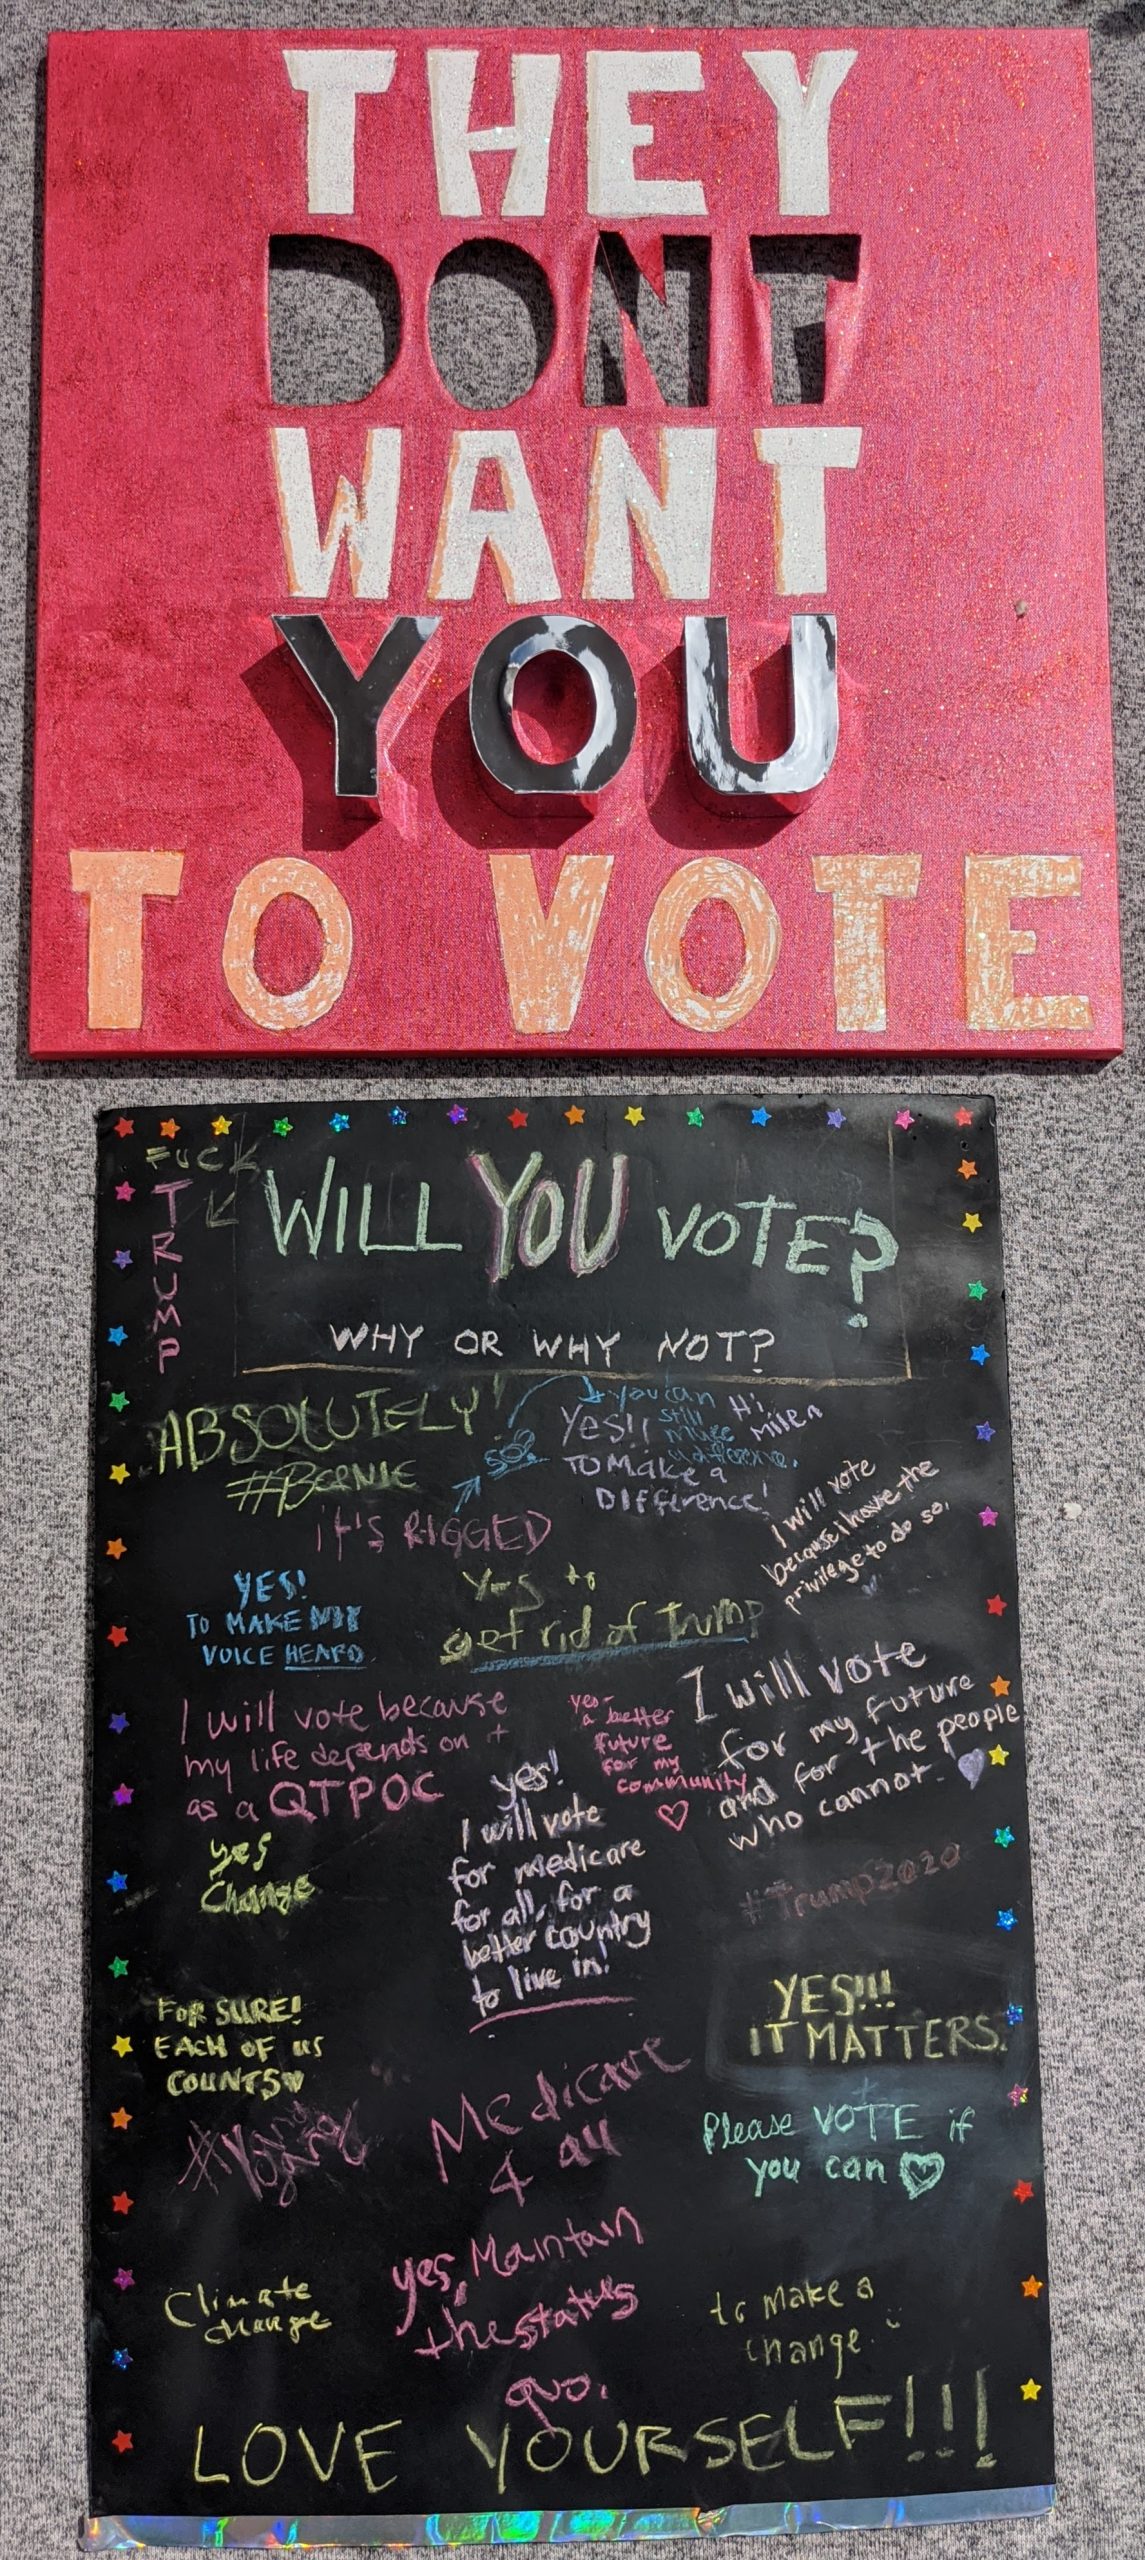 THEY
DONT
WANT
YOU
TO VOTE
FUCK
TRUMP
WILL YOU VOTE?
WHY OR WHY NOT?
ABSOLUTELY!
#BERNIE
you can
still
make
a difference.
YES!!
TO MAKE a
DIFFERENCE!
Hi,
Milen
it's RIGGED
I will vote
because i have the
privilege to do so.
YES!
TO MAKE MY
VOICE HEARD.
Yes to
get rid of Trump
I will vote because
my life depends on it
as a QTPOC
yes-
a better
future
for my
community
I will vote
for my future
and for the people
who cannot.
yes!
I will vote
for medicare
for all, for a
better country
to live in!
yes
Change
#Trump2020
FOR SURE!
EACH OF US
COUNTS
YES!!!
IT MATTERS.
Medicare
4 all
Please VOTE if
you can
Climate
change
yes, Maintain
the status
quo.
to make a
change.
LOVE YOURSELF!!!